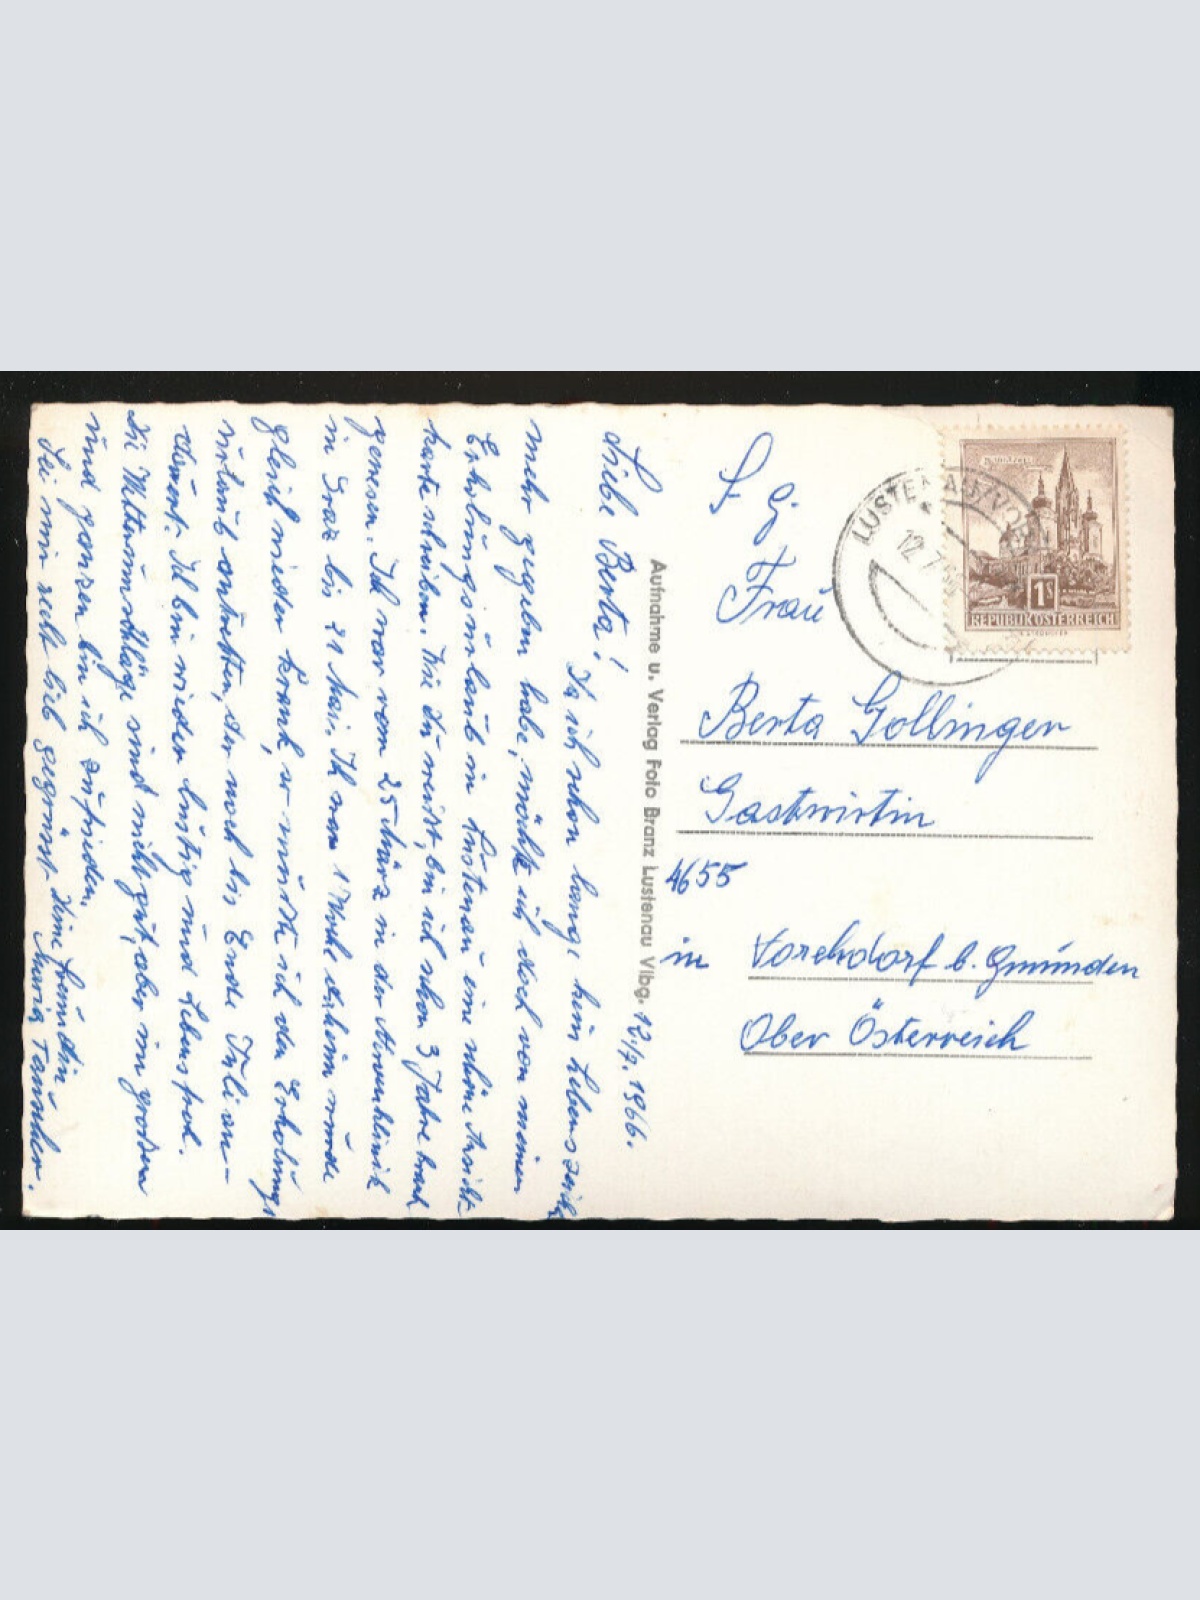 12./7. 1966.
Liebe Berta!
Da ich schon lange kein Lebenszeich
mehr gegeben habe, möchte ich doch von meinem
Erholungsurlaub in Lustenau eine schöne Ansicht-
karte schreiben. Wie du weist, bin ich schon 3 Jahre krank
gewesen. Ich war vom 25 März in der Nervenklinik
in Graz bis 21 Mai. Ich war 1 Woche daheim wurde
gleich wieder krank, so mußte ich den Erholungs
urlaub antretten, der noch bis Ende Juli an-
dauert. Ich bin wieder lustig und Lebensfroh.
Die Witterung sind nicht gut, aber im großen
und ganzen bin ich zufrieden.
Sei nun recht lieb gegrüßt Deine Freundin
Maria
Aufnahme u. Verlag Foto Branz Lustenau Vlbg.
LUSTENAU/VO
12.7.66
1S
REPUBLIK ÖSTERREICH
S. g.
Frau
Berta Gollinger
Gastwirtin
4655
in Vorchdorf b. Gmünden
Ober Österreich